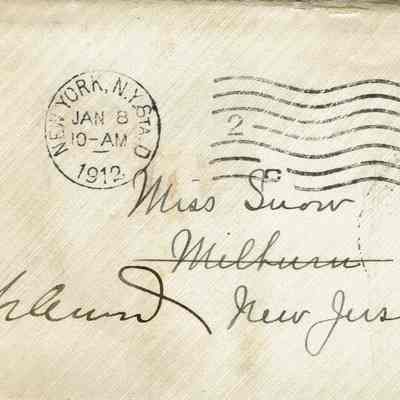 NEW YORK, N.Y. STA. D
JAN 8
10-AM
1912
2
Miss Snow
Milburn
New Jers